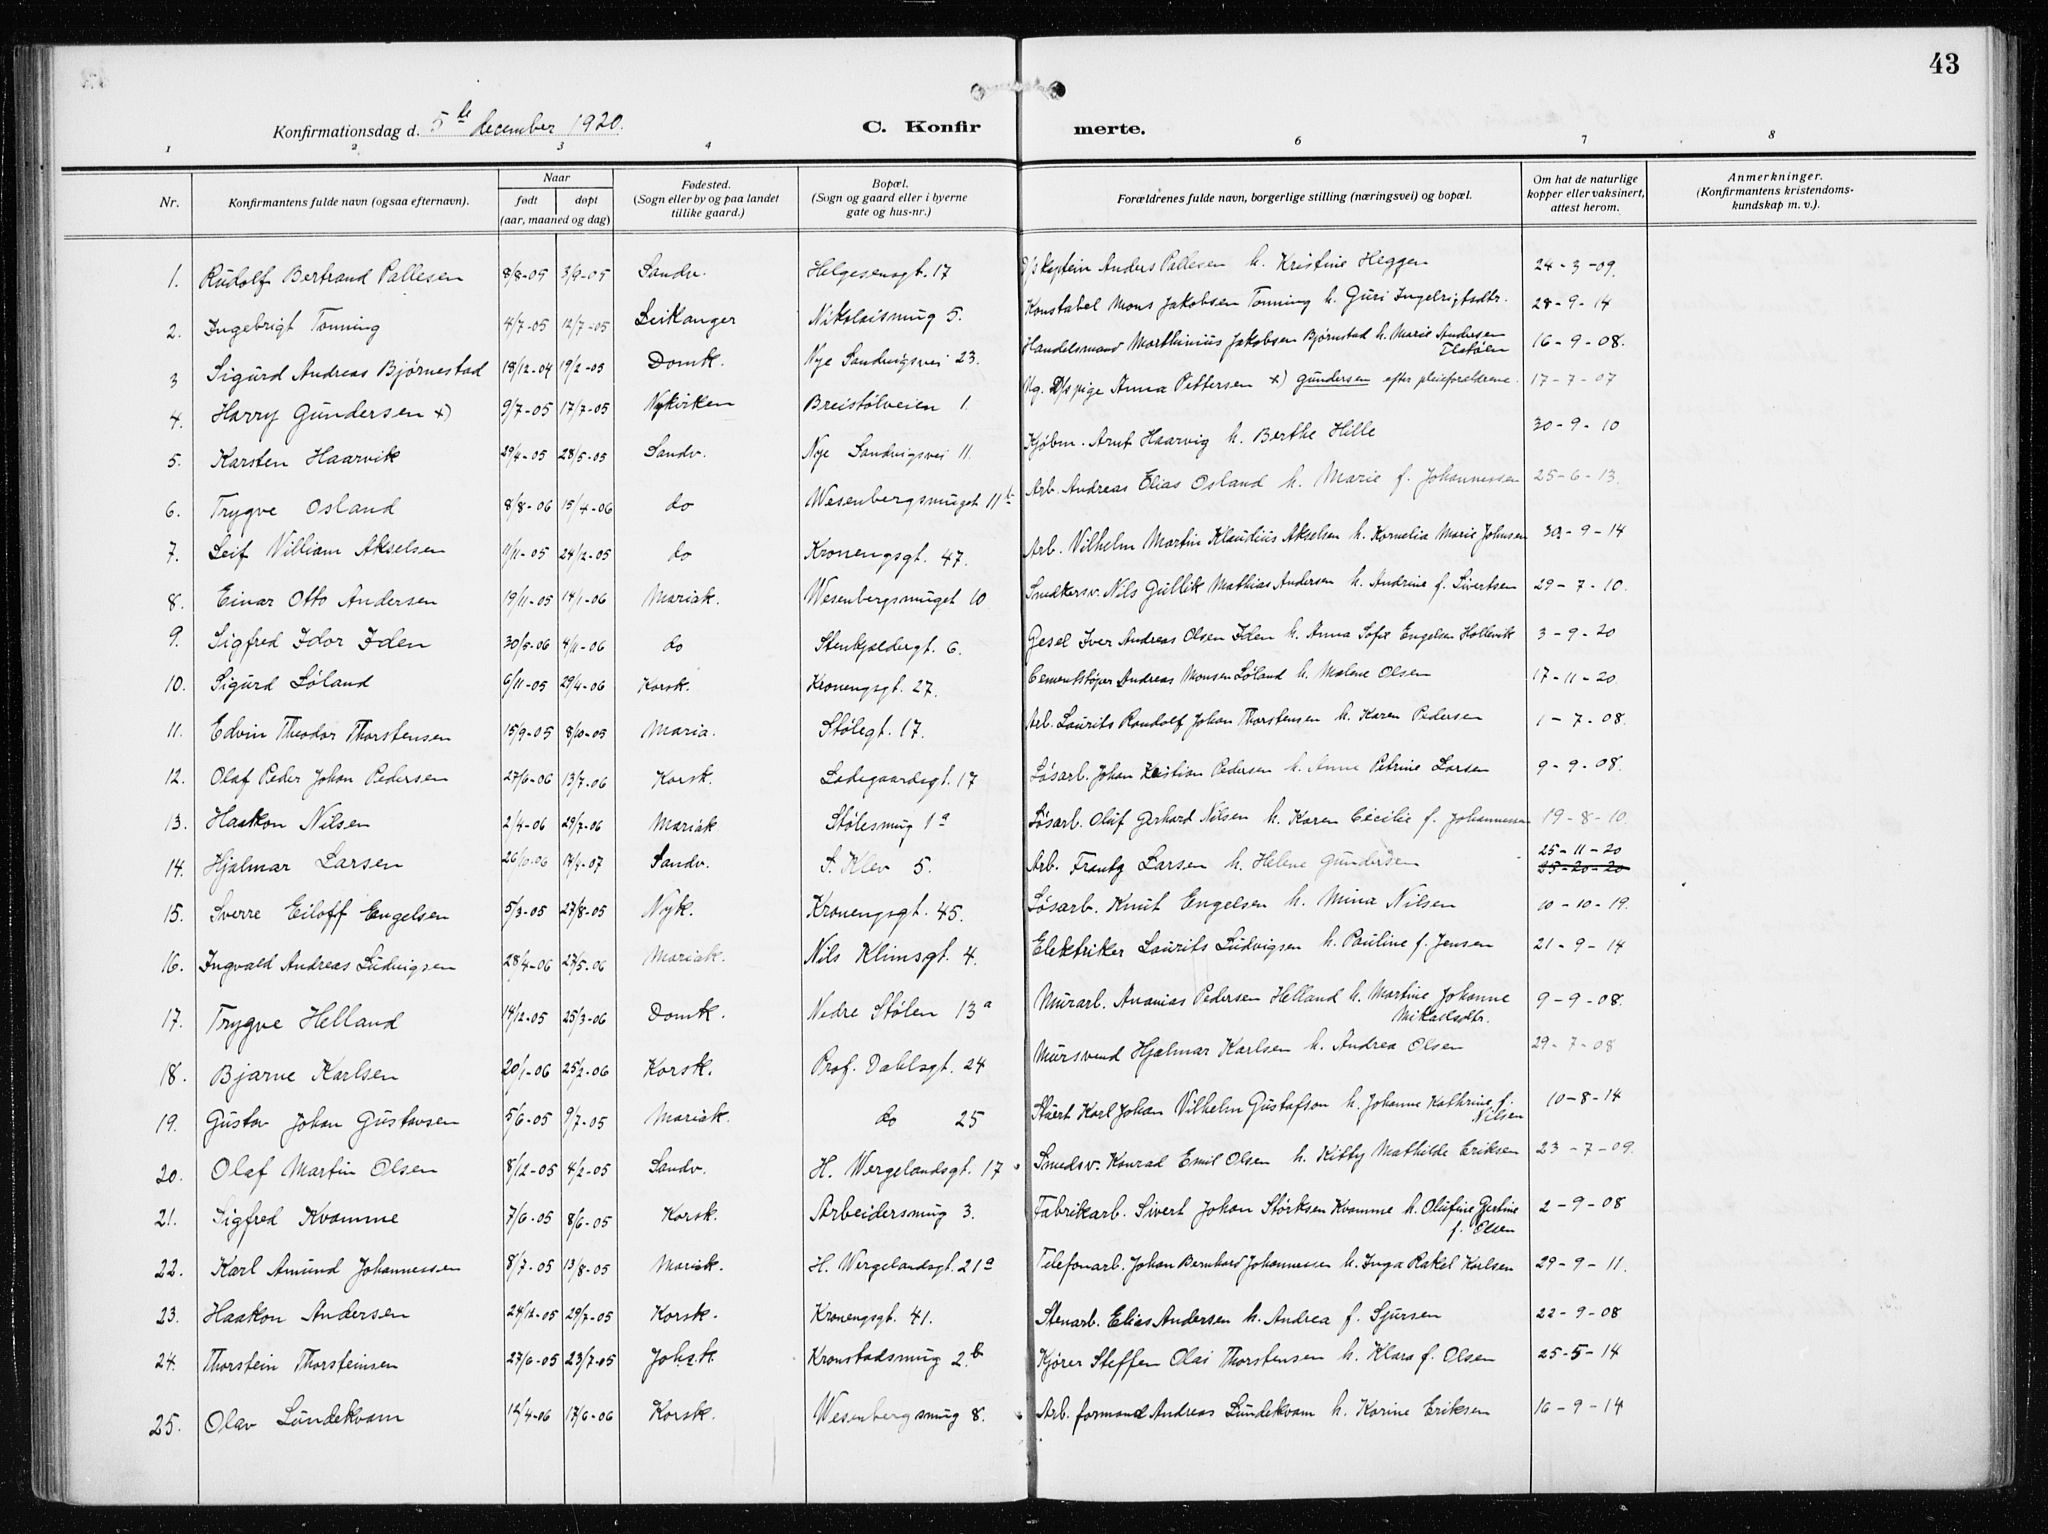 43
Konfirmationsdag d. 5te december 1920.
C. Konfirmerte.
1 2 3 4 6 7 8
Nr. | Konfirmantens fulde navn (ogsaa efternavn). | Naar født døpt (aar, maaned og dag) | Fødested. (Sogn eller by og paa landet tillike gaard.) | Bopæl. (Sogn og gaard eller i byerne gate og hus-nr.) | Forældrenes fulde navn, borgerlige stilling (næringsvei) og bopæl. | Om hat de naturlige kopper eller vaksinert, attest herom. | Anmerkninger. (Konfirmantens kristendoms-kundskap m. v.).
1. Rudolf Bertrand Pallesen 8/8-05 3/9-05 Sandv. Helgesensgt. 17 D/s kaptein Anders Pallesen h. Kristine Heggen 24-3-09.
2. Ingebrigt Tonning 4/7-05 12/7-05 Leikanger Nikolaismug 5. Konstabel Mons Jakobsen Tonning h. Guri Ingebrigtsdtr. 28-9-14
3 Sigurd Andreas Bjørnestad 18/12-04 19/2-05 Domk. Nye Sandvigsvei 23. Handelsmand Marthinius Jakobsen Bjørnstad h. Marie Andersen Flatøen 16-9-08.
4. Harry Gundersen x) 9/7-05 17/7-05 Nykirken Breistølveien 1. Ug. D/s pige Anna Pettersen x) Gundersen efter pleieforældrene. 17-7-07
5. Karsten Haarvik 29/4-05 28/5-05 Sandv. Nye Sandvigsvei 11. Kjøbm. Arnt Haarvig h. Berthe Hille 30-9-10
6. Trygve Osland 8/8-06 15/4-06 do Wesenbergsmuget 11b Arb. Andreas Elias Osland h. Marie f. Johannessen 25-6-13.
7. Leif Villiam Akselsen 11/11-05 24/2-05 do Kronengsgt. 47. Arb. Vilhelm Martin Klaudius Akselsen h. Kornelia Marie Johnsen 30-9-14
8. Einar Otto Andersen 19/11-05 14/1-06 Mariak. Wesenbergsmuget 10 Snedkersv. Nils Gullik Mathias Andersen h. Andrine f. Sivertsen 29-7-10.
9. Sigfred Idor Iden 30/5-06 4/11-06 do Stenkjeldergt. 6. Gesel Iver Andreas Olsen Iden h. Anna Sofie Engelsen Hollevik 3-9-20
10. Sigurd Løland 6/11-05 29/4-06 Korsk. Kronengsgt. 27. Cementstøper Andreas Monsen Løland h. Malene Olsen 17-11-20
11. Edvin Theodor Thorstensen 15/9-05 8/10-05 Maria. Stølegt. 17. Arb. Laurits Randolf Johan Thorstensen h. Karen Pedersen 1-7-08.
12. Olaf Peder Johan Pedersen 27/6-06 13/7-06 Korsk. Ladegaardsgt. 17 Løsarb. Johan Kristian Pedersen h. Anne Petrine Larsen 9-9-08.
13. Haakon Nilsen 2/4-06 29/7-06 Mariak Stølesmug 1a Løsarb. Oluf Gerhard Nilsen h. Karen Cecilie f. Johannessen 19-8-10.
14. Hjalmar Larsen 26/10-06 14/4-07 Sandv. S. Klev 5. Arb. Frantz Larsen h. Helene Gundersen 25-11-20
25-20-20
15. Sverre Eiloff Engelsen 5/3-05 27/8-05 Nyk. Kronengsgt. 45. Løsarb. Knut Engelsen h. Mina Nilsen 10-10-19.
16. Ingvald Andreas Ludvigsen 28/4-06 27/5-06 Mariak. Nils Klimsgt. 4. Elektriker Laurits Ludvigsen h. Pauline f. Jensen 21-9-14
17. Trygve Helland 14/12-05 25/3-06 Domk. Nedre Stølen 13a Murarb. Ananias Pedersen Helland h. Martine Johanne Mikaelsdtr. 9-9-08.
18. Bjarne Karlsen 20/1-06 25/2-06 Korsk. Prof. Dahlsgt. 24 Mursvend Hjalmar Karlsen h. Andrea Olsen 29-7-08
19. Gustav Johan Gustavsen 5/6-05 9/7-05 Mariak. do 25 Stuert Karl Johan Vilhelm Gustafson h. Johanne Kathrine f. Nilsen 10-8-14
20. Olaf Martin Olsen 8/12-05 4/2-05 Sandv. H. Wergelandsgt. 17 Smedsv. Konrad Emil Olsen h. Kitty Mathilde Eriksen 23-7-09.
21. Sigfred Kvamme 7/6-05 8/6-05 Korsk. Arbeidersmug 3. Fabrikarb. Sivert Johan Størksen Kvamme h. Olufine Gjertine f. Olsen 2-9-08
22. Karl Amund Johannessen 8/7-05 13/8-05 Mariak. H. Wergelandsgt. 21a Telefonarb. Johan Bernhard Johannessen h. Inga Rakel Karlsen 29-9-11.
23. Haakon Andersen 24/12-05 29/7-05 Korsk. Kronengsgt. 41. Stenarb. Elias Andersen h. Andrea f. Sjursen 22-9-08
24. Thorstein Thorsteinsen 27/6-05 23/7-05 Johsk. Kronstadsmug 2.b Kjører Steffen Olai Thorstensen h. Klara f. Olsen 25-5-14
25. Olav Lundekvam 14/4-06 17/6-06 Korsk. Wesenbergsmug 8. Arb. formand Andreas Lundekvam h. Karine Eriksen 16-9-14